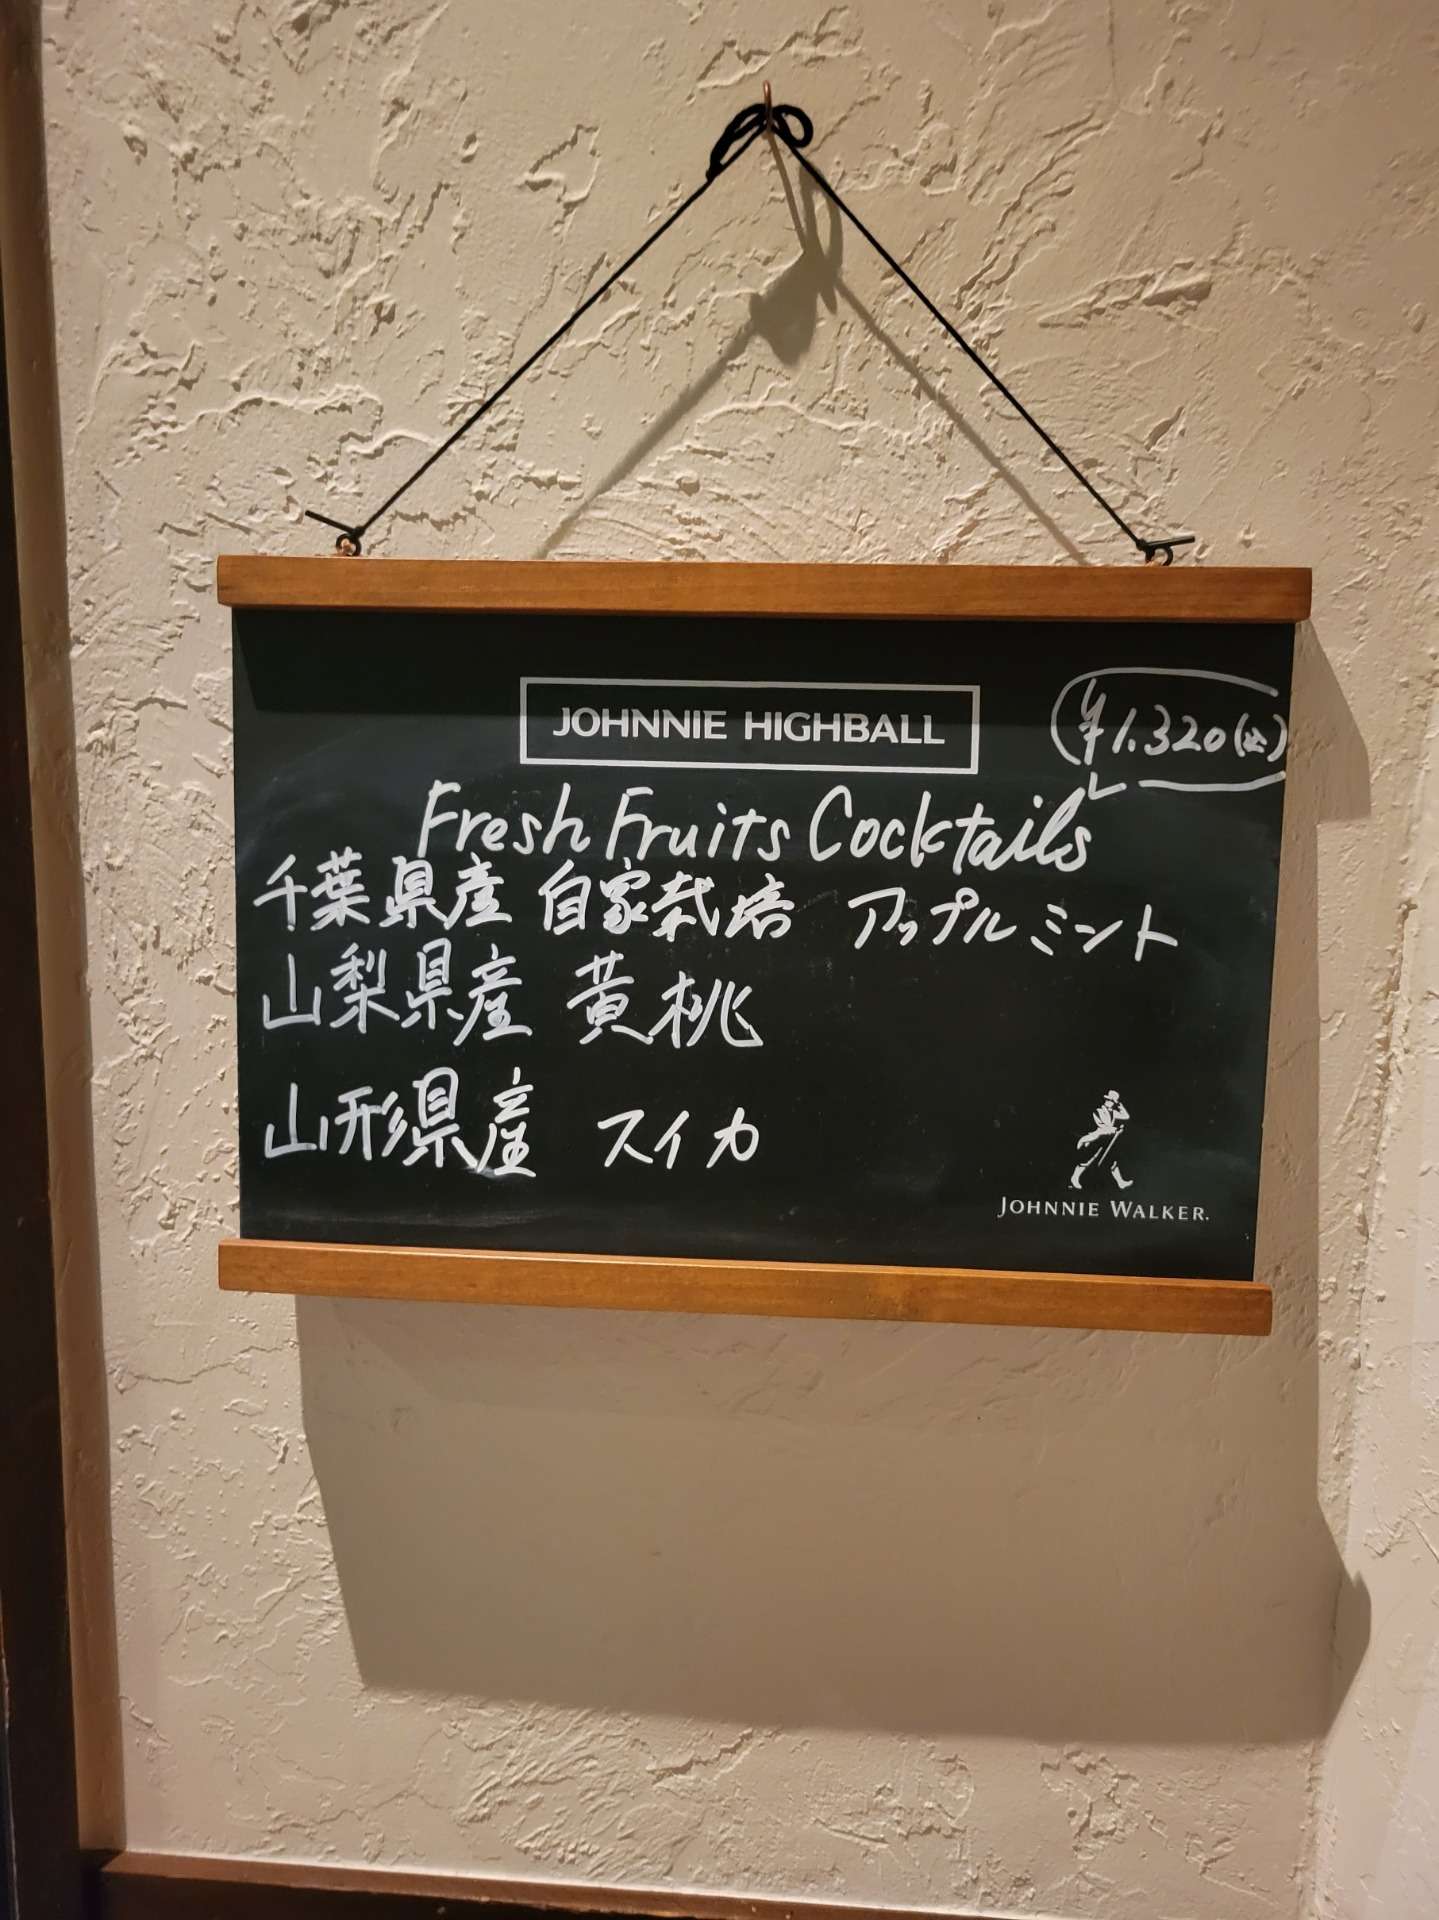 JOHNNIE HIGHBALL
¥1.320(込)
Fresh Fruits Cocktails
千葉県産 自家栽培 アップルミント
山梨県産 黄桃
山形県産 スイカ
JOHNNIE WALKER.